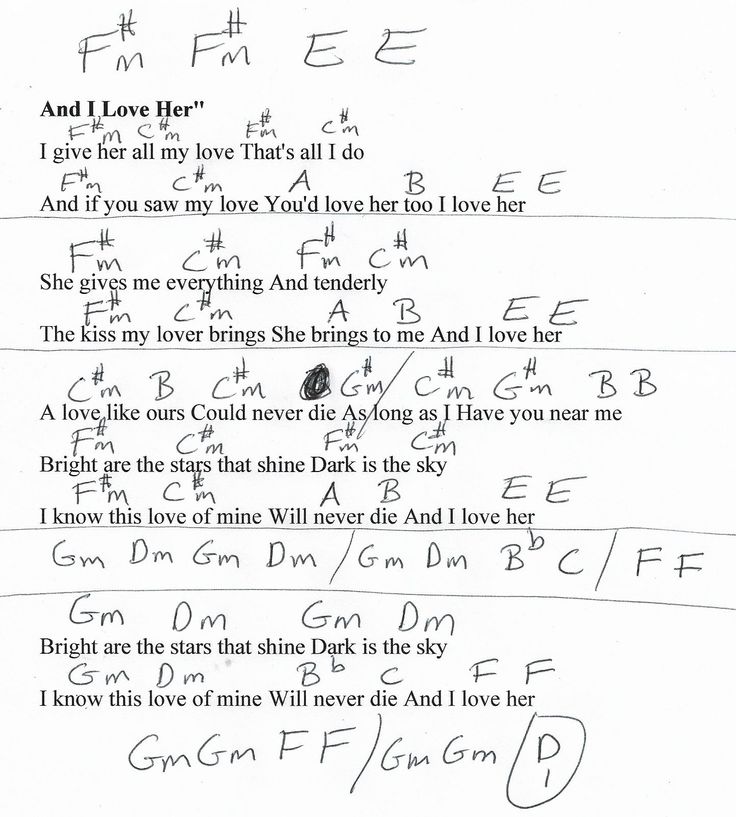 F#m F#m E E
And I Love Her"
F#m C#m F#m C#m
I give her all my love That's all I do
F#m C#m A B E E
And if you saw my love You'd love her too I love her
F#m C#m F#m C#m
She gives me everything And tenderly
F#m C#m A B E E
The kiss my lover brings She brings to me And I love her
C#m B C#m G#m / C#m G#m B B
A love like ours Could never die As long as I Have you near me
F#m C#m F#m C#m
Bright are the stars that shine Dark is the sky
F#m C#m A B E E
I know this love of mine Will never die And I love her
Gm Dm Gm Dm / Gm Dm Bb C / F F
Gm Dm Gm Dm
Bright are the stars that shine Dark is the sky
Gm Dm Bb C F F
I know this love of mine Will never die And I love her
Gm Gm F F / Gm Gm / D
1